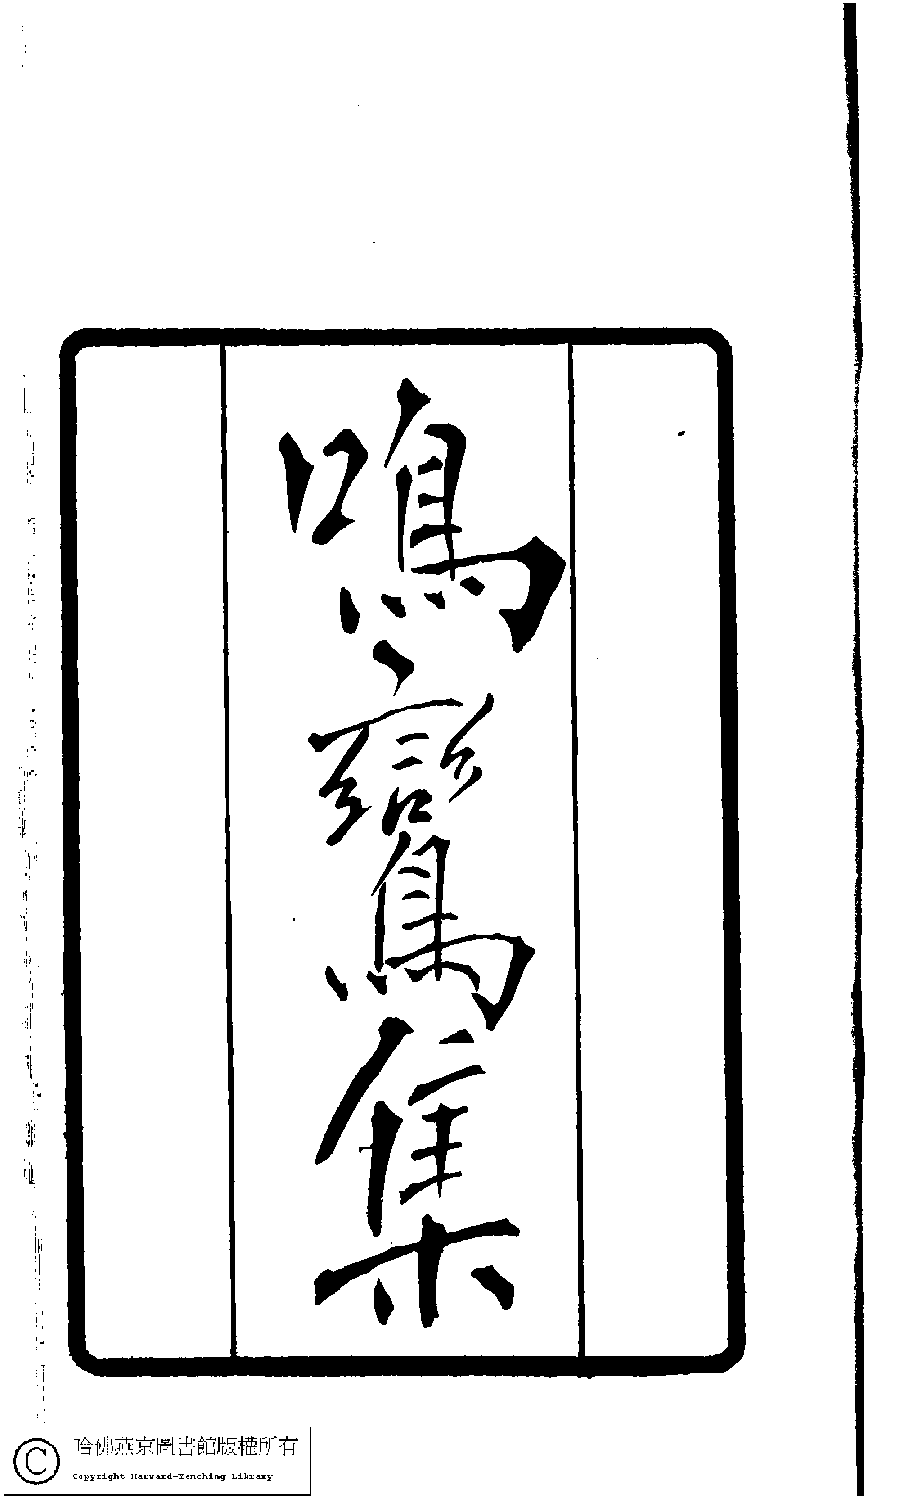 鳴鸞集
哈佛燕京圖書館版權所有
Copyright Harvard-Yenching Library